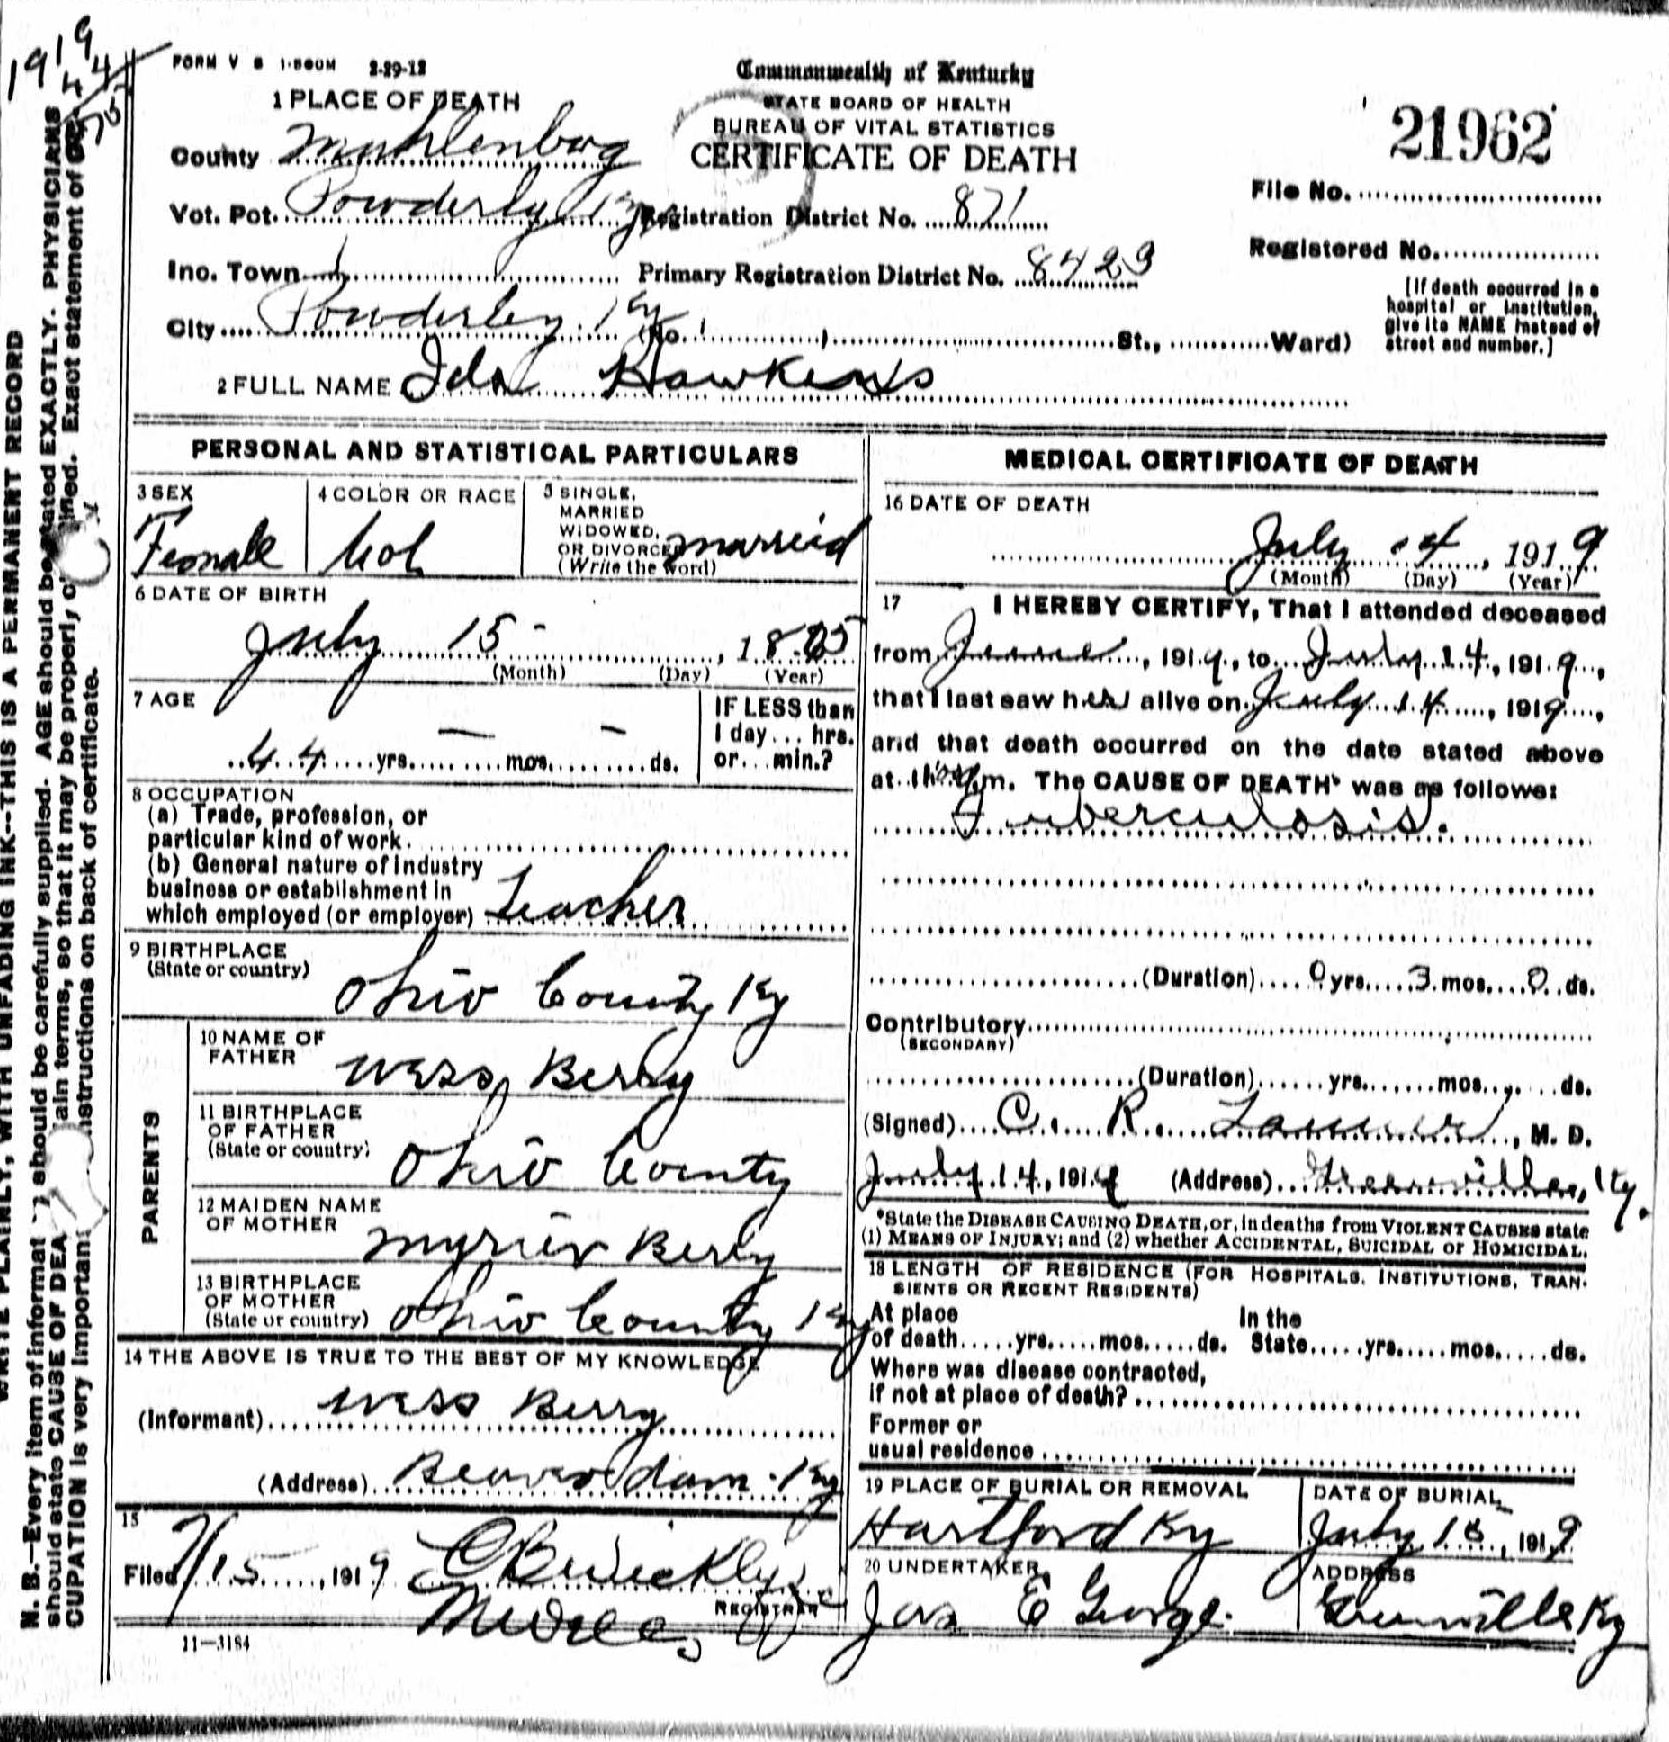 1919
44
75
FORM V S 1-500M 2-29-12
Commonwealth of Kentucky
STATE BOARD OF HEALTH
BUREAU OF VITAL STATISTICS
CERTIFICATE OF DEATH
21962
File No.
Registered No.
[If death occurred in a
hospital or institution,
give its NAME instead of
street and number.]
1 PLACE OF DEATH
County Muhlenbarg
Vot. Pct. Powderly Ky Registration District No. 871
Ino. Town Primary Registration District No. 8423
City Powderley Ky (No. St., Ward)
2 FULL NAME Ida Hawkins
PERSONAL AND STATISTICAL PARTICULARS
3 SEX
Female
4 COLOR OR RACE
Col
5 SINGLE,
MARRIED
WIDOWED,
OR DIVORCED
(Write the word)
married
6 DATE OF BIRTH
July 15 , 18
(Month) (Day) (Year)
7 AGE
44 yrs. — mos. — ds.
IF LESS than
1 day... hrs.
or... min.?
8 OCCUPATION
(a) Trade, profession, or
particular kind of work
(b) General nature of Industry
business or establishment in
which employed (or employer) teacher
9 BIRTHPLACE
(State or country)
Ohio County Ky
PARENTS
10 NAME OF
FATHER
Wess Berry
11 BIRTHPLACE
OF FATHER
(State or country)
Ohio County
12 MAIDEN NAME
OF MOTHER
Berry
13 BIRTHPLACE
OF MOTHER
(State or country)
Ohio County Ky
14 THE ABOVE IS TRUE TO THE BEST OF MY KNOWLEDGE
(Informant) Wess Berry
(Address) Beaver dam Ky
15
Filed 7/15, 1919
REGISTRAR
11—3184
MEDICAL CERTIFICATE OF DEATH
16 DATE OF DEATH
July 14, 1919
(Month) (Day) (Year)
17 I HEREBY CERTIFY, That I attended deceased
from June, 1919, to July 14, 1919,
that I last saw her alive on July 14, 1919,
and that death occurred on the date stated above
at m. The CAUSE OF DEATH* was as follows:
Tuberculosis.
(Duration) 0 yrs. 3 mos. 0 ds.
Contributory
(SECONDARY)
(Duration) yrs. mos. ds.
(Signed) C. R. , M. D.
July 14, 1919 (Address) Greenville, Ky.
*State the DISEASE CAUSING DEATH, or, in deaths from VIOLENT CAUSES state
(1) MEANS OF INJURY; and (2) whether ACCIDENTAL, SUICIDAL or HOMICIDAL.
18 LENGTH OF RESIDENCE (FOR HOSPITALS, INSTITUTIONS, TRAN-
SIENTS OR RECENT RESIDENTS)
At place
of death yrs. mos. ds.
In the
State yrs. mos. ds.
Where was disease contracted,
if not at place of death?
Former or
usual residence
19 PLACE OF BURIAL OR REMOVAL
Hartford Ky
DATE OF BURIAL
July 15, 1919
20 UNDERTAKER
Jas E George
ADDRESS
Greenville Ky
WRITE PLAINLY, WITH UNFADING INK--THIS IS A PERMANENT RECORD
N. B.—Every item of informat should be carefully supplied. AGE should be stated EXACTLY. PHYSICIANS
should state CAUSE OF DEA ain terms, so that it may be properly c ified. Exact statement of
CUPATION is very important nstructions on back of certificate.